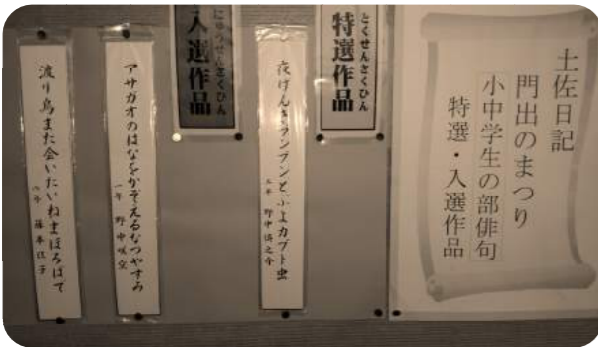 土佐日記
門出のまつり
小中学生の部俳句
特選・入選作品
とくせんさくひん
特選作品
夜げんきブンブンとぶよカブト虫
にゅうせんさくひん
入選作品
アサガオのはなをかぞえるなつやすみ
一年 野中咲空
渡り鳥また会いたいねまほろばで
六年